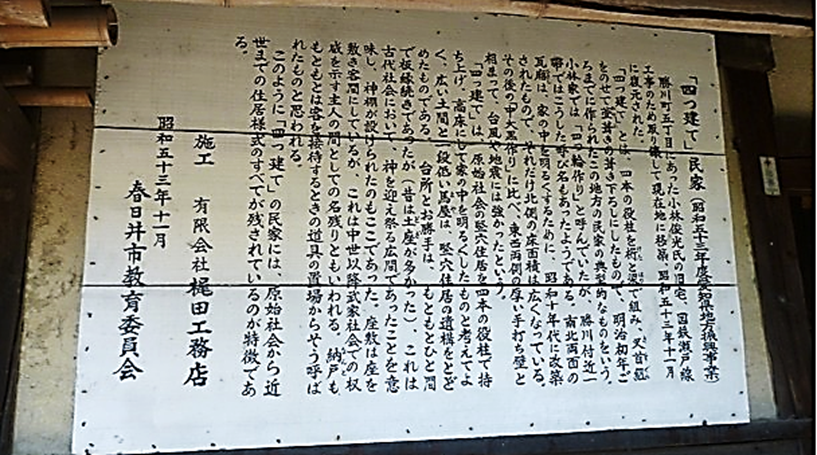 「四つ建て」民家（昭和五十三年度愛知県地方振興事業）
勝川町五丁目にあった小林俊光氏の旧宅、国鉄瀬戸線
工事のため取り壊して現在地に移築、昭和五十三年十一月
に復元された
「四つ建て」とは、四本の役柱を桁と梁で組み、叉首組
をのせて茅葺きの葺き下ろしにしたもので、明治初年ご
ろまでに作られたこの地方の民家の典型的なものをいう。
小林家では、「四つ輪作り」と呼んでいたが、勝川付近一
帯ではこうした呼び名もあったようである。南北両面の
瓦廂は、家の中を明るくするために、昭和十年代に改築
されたもので、それだけ北側の床面積は広くなっている。
その後の「中大黒作り」に比べ、東西両側の厚い手打ち壁と
相まって、台風や地震には強かったという。
「四つ建て」は、原始社会の竪穴住居を四本の役柱で持
ち上げ、高床にして家の中を明るくしたものと考えてよ
く、広い土間と一段低い馬屋は、竪穴住居の遺構をとど
めたものである。台所とお勝手は、もともとひと間
で板縁続きであったが（昔は土座が多かった）、これは
古代社会において、神を迎え祭る広間であったことを意
味し、神棚が設けられたのもここであった。座敷は座を
敷き客間にしているが、これは中世以降武家社会での権
威を示す主人の間としての名残りともいわれる。納戸も
もともとは客を接待するときの道具の置場からそう呼ば
れたものと思われる。
このように「四つ建て」の民家には、原始社会から近
世までの住居様式のすべてが残されているのが特徴であ
る。
施工　有限会社梶田工務店
昭和五十三年十一月
春日井市教育委員会